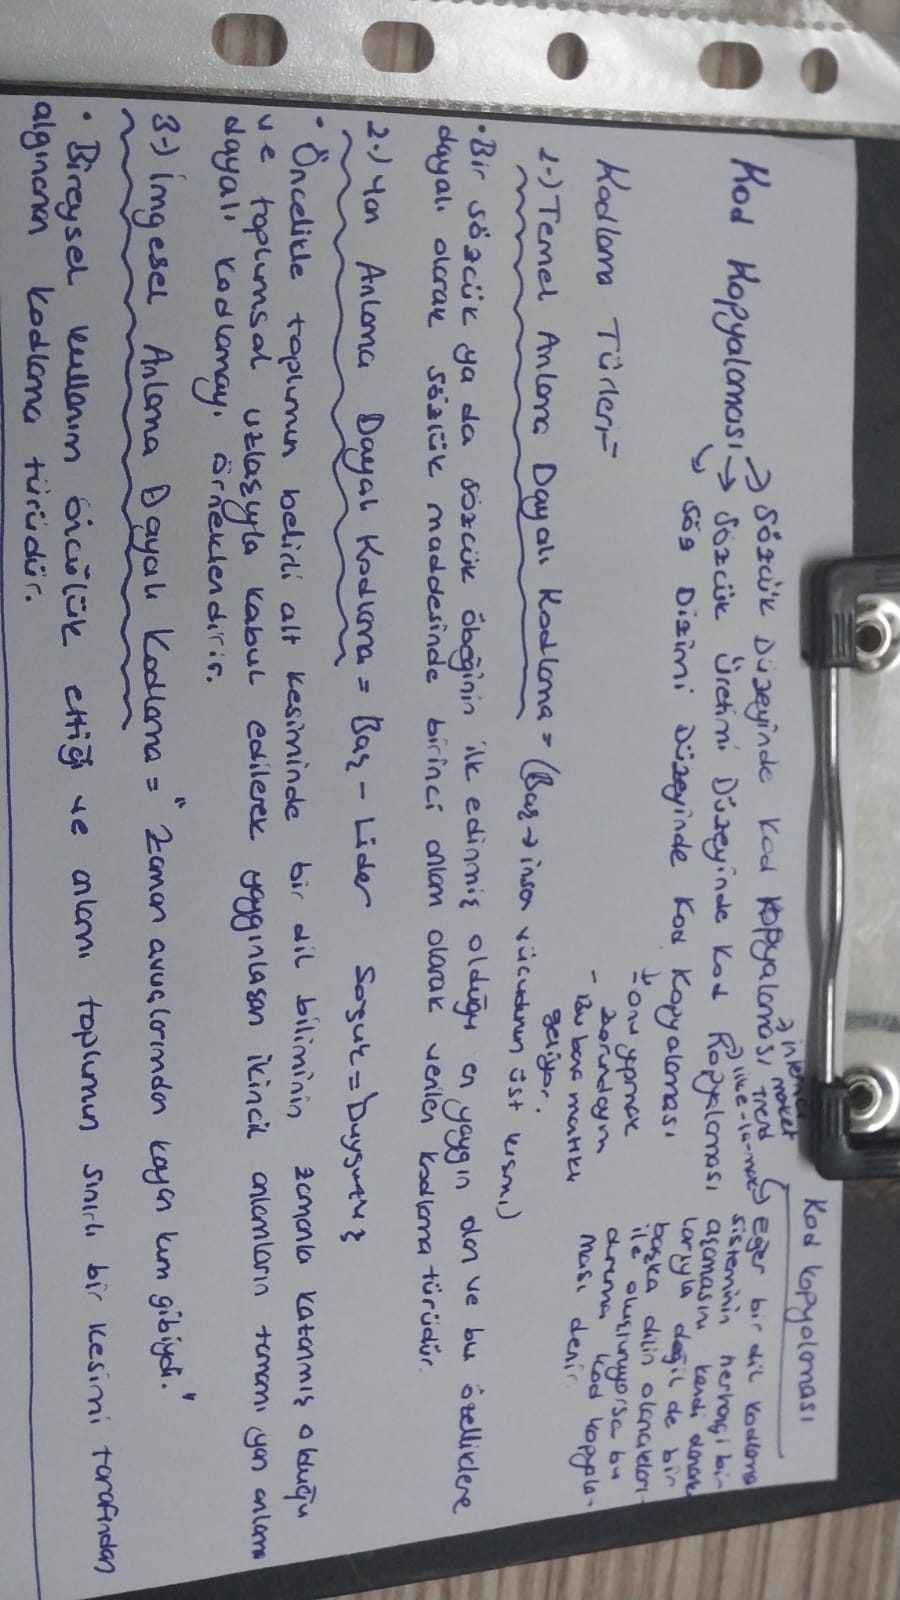 Kod Kopyalaması
Kod Kopyalaması → Sözcük Düzeyinde Kod Kopyalaması trend
→ internet
market
→ Sözcük Üretimi Düzeyinde Kod Kopyalaması
→ like-la-mak
↳ Söz Dizimi Düzeyinde Kod Kopyalaması
→ onu yapmak
zorundayım
- Bu bana mantıklı
geliyor.
→ Eğer bir dil kodlama
sisteminin herhangi bir
aşamasını kendi
larıyla değil de bir
başka dilin olanakları
ile oluşturuyorsa bu
duruma kod kopyala-
ması denir
Kodlama Türleri
1-) Temel Anlama Dayalı Kodlama = (Baş → insan vücudunun üst kısmı)
• Bir sözcük ya da sözcük öbeğinin ilk edinmiş olduğu en yaygın olan ve bu özelliklere
dayalı olarak sözlük maddesinde birinci anlam olarak verilen kodlama türüdür.
2-) Yan Anlama Dayalı Kodlama = Baş - Lider Soğuk = Duygusuz
• Öncelikle toplumun belirli alt kesiminde bir dil biliminin zamanla katanmış olduğu
ve toplumsal uzlaşıyla kabul edilerek yaygınlaşan ikincil anlamların tamamı yan anlama
dayalı kodlamayı örneklendirir.
3-) İmgesel Anlama Dayalı Kodlama = "Zaman avuçlarımdan kayan kum gibiydi."
• Bireysel kullanım öncülük ettiği ve anlamı toplumun sınırlı bir kesimi tarafından
algılanan kodlama türüdür.